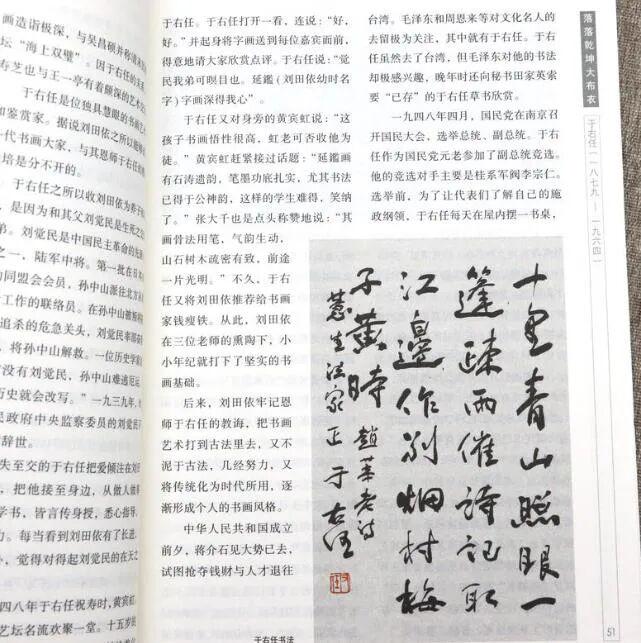 画造诣极深，与吴昌硕并称清末
坛“海上双璧”。因于右任的关
寿芝也与王一亭有着颇深的艺术交
于右任是位独具慧眼的书画
和鉴赏家。据说刘田依之所以能够
代书画大家，与其恩师于右任的
培是分不开的。
于右任之所以收刘田依为养子
，是因为和其父刘觉民是生死之
。刘觉民是中国民主革命的先
一，陆军中将。第一批在日
的同盟会会员，孙中山派往北方
工作的联络员。在孙中山被
追杀的危急关头，刘觉民率部
，将孙中山解救。一位历史学
没有刘觉民，孙中山难逃厄运
历史就会改写。”一九三九年，
民政府中央监察委员的刘觉民
辞世。
失至交的于右任把爱倾注在刘
，把他接至身边，从做人做
学书，皆言传身授，悉心指导，
力。每当看到刘田依有了长进，
，觉得对得起刘觉民的在天之
四八年于右任祝寿时，黄宾虹、
艺坛名流欢聚一堂。十五岁
于右任。于右任打开一看，连说：“好，
好。”并起身将字画送到每位嘉宾面前，
得意地请大家欣赏点评。于右任说：“觉
民我弟可瞑目也。延鑑（刘田依幼时名
字）字画深得我心”。
于右任又对身旁的黄宾虹说：“这
孩子书画悟性很高，虹老可否收他为
徒。”黄宾虹赶紧接过话题：“延鑑画
有石涛遗韵，笔墨功底扎实，尤其书法
已得于公神韵，这样的学生难得，笑纳
了。”张大千也是点头称赞地说：“其
画骨法用笔，气韵生动，
山石树木疏密有致，前途
一片光明。”不久，于右
任又将刘田依推荐给书画
家钱瘦铁。从此，刘田依
在三位老师的熏陶下，小
小年纪就打下了坚实的书
画基础。
后来，刘田依牢记恩
师于右任的教海，把书画
艺术打到古法里去，又不
泥于古法，几经努力，又
将传统化为时代所用，逐
渐形成个人的书画风格。
中华人民共和国成立
前夕，蒋介石见大势已去，
试图抢夺钱财与人才退往
台湾。毛泽东和周恩来等对文化名人的
去留极为关注，其中就有于右任。于右
任虽然去了台湾，但毛泽东对他的书法
却极感兴趣，晚年时还向秘书田家英索
要“已存”的于右任草书欣赏。
一九四八年四月，国民党在南京召
开国民大会，选举总统、副总统。于右
任作为国民党元老参加了副总统竞选。
他的竞选对手主要是桂系军阀李宗仁。
选举前，为了让代表们了解自己的施
政纲领，于右任每天在屋内摆一书桌，
十里青山照眼一
篷疎雨催诗记取
江邊作别烟村梅
子黄时
慧生法家正
于右任
于右任书法
落落乾坤大布衣
于右任（一八七九—一九六四）
51